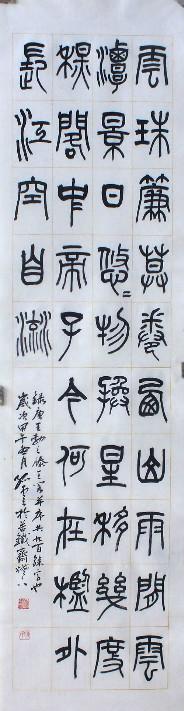 雲珠簾莫卷西山雨閒雲
潭景日悠〻物換星移幾度
秋閣中帝子今何在檻外
長江空自流
錄唐王勃之滕王閣
歲次甲午月於鐵齋